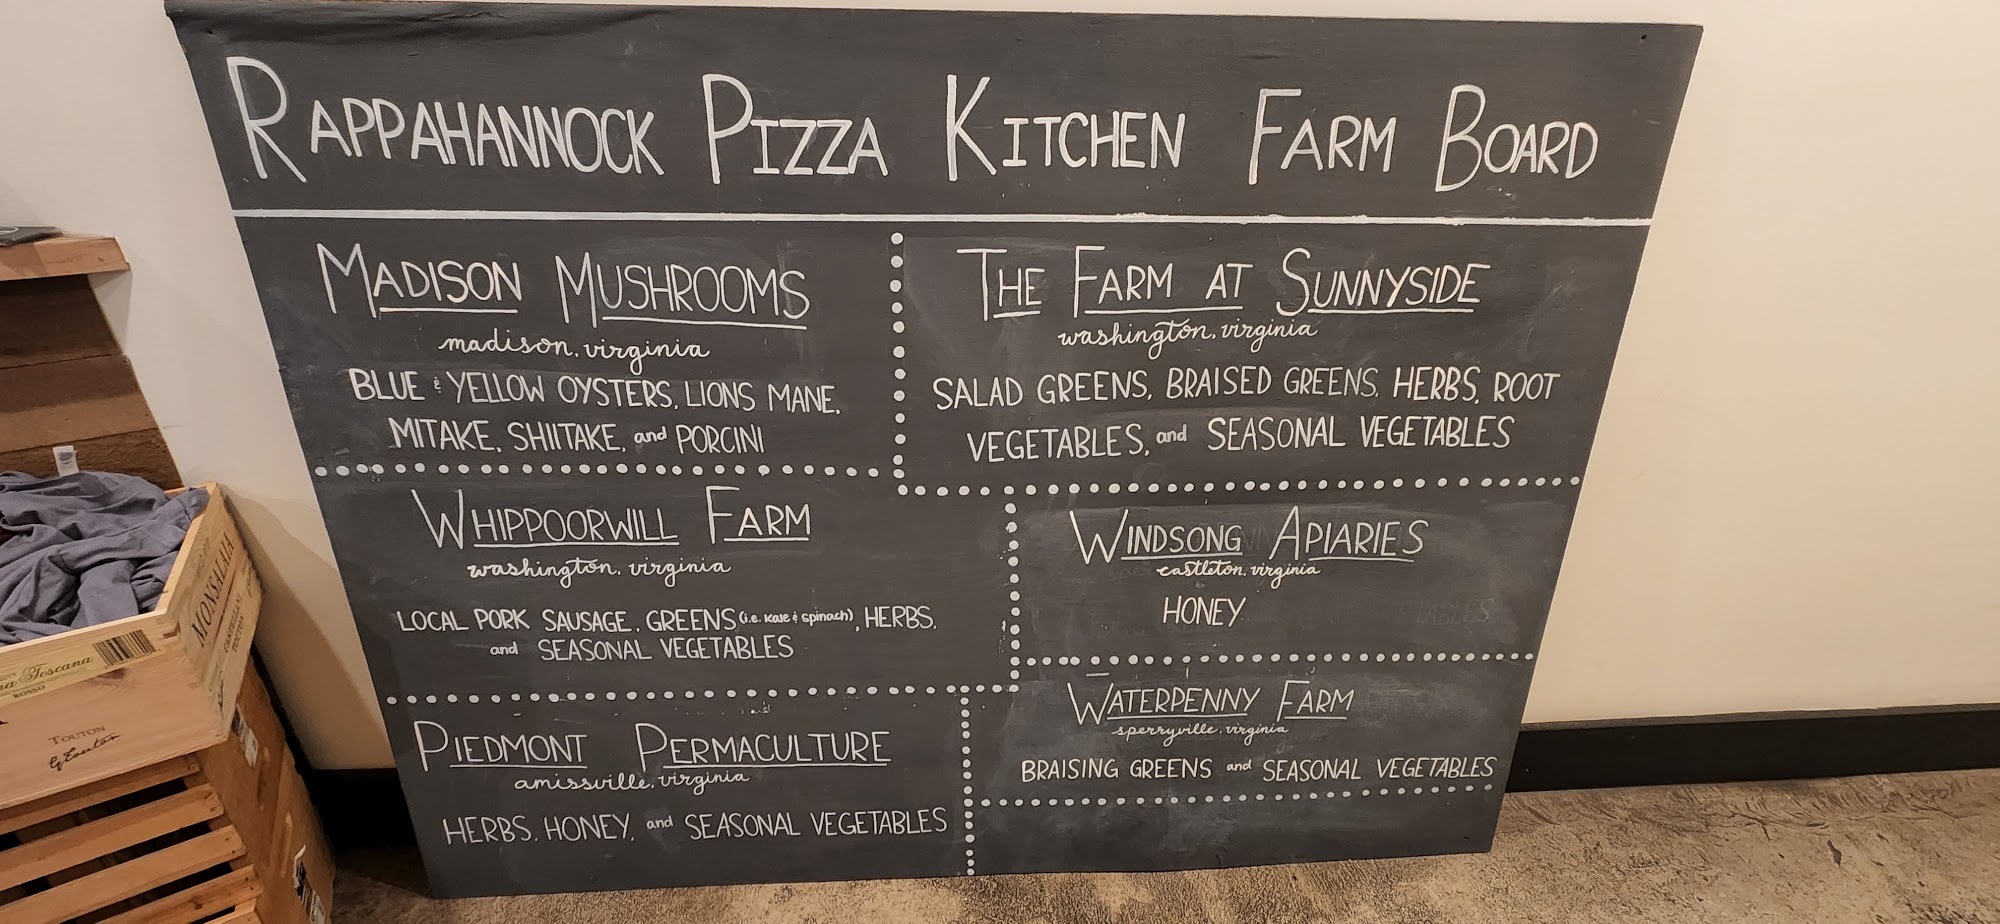 RAPPAHANNOCK PIZZA KITCHEN FARM BOARD
MADISON MUSHROOMS
madison, virginia
BLUE & YELLOW OYSTERS, LIONS MANE,
MITAKE, SHIITAKE, and PORCINI
THE FARM AT SUNNYSIDE
washington, virginia
SALAD GREENS, BRAISED GREENS, HERBS, ROOT
VEGETABLES, and SEASONAL VEGETABLES
WHIPPOORWILL FARM
washington, virginia
LOCAL PORK SAUSAGE, GREENS (i.e. kale & spinach), HERBS,
and SEASONAL VEGETABLES
WINDSONG APIARIES
castleton, virginia
HONEY
PIEDMONT PERMACULTURE
amissville, virginia
HERBS, HONEY, and SEASONAL VEGETABLES
WATERPENNY FARM
sperryville, virginia
BRAISING GREENS and SEASONAL VEGETABLES
MONSALAIA
Toscana
ROSSO
TOUTON
G Touton